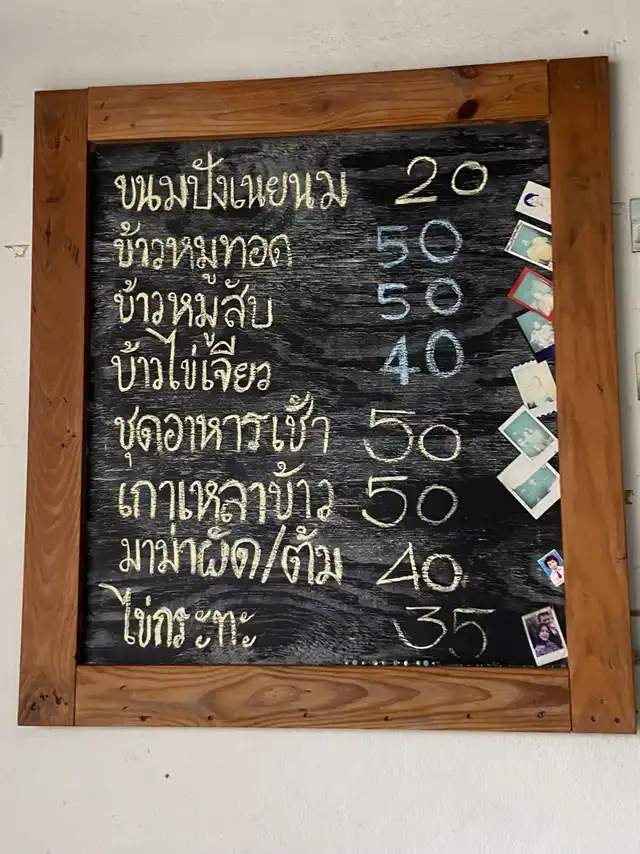 ขนมปังเนยนม 20
ข้าวหมูทอด 50
ข้าวหมูสับ 50
ข้าวไข่เจียว 40
ชุดอาหารเช้า 50
เกาเหลาข้าว 50
มาม่าผัด/ต้ม 40
ไข่กระทะ 35